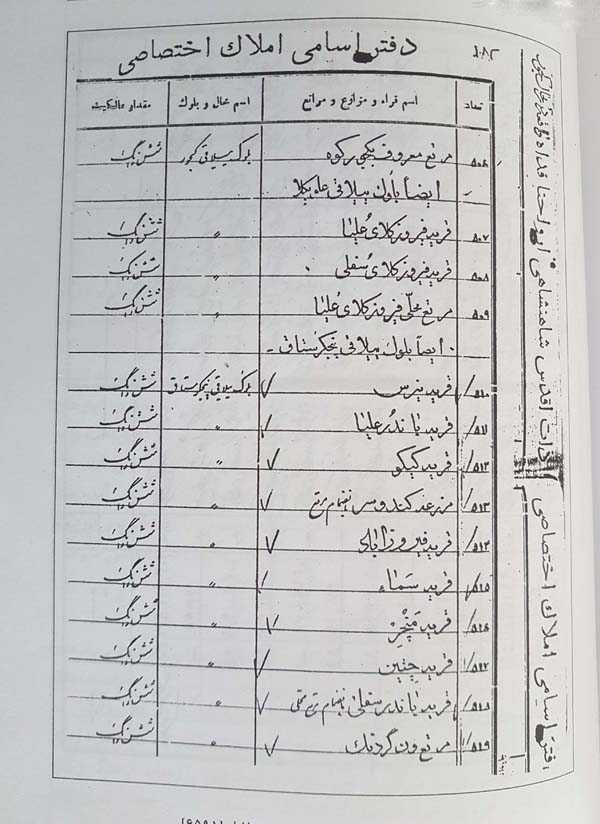 ۱۰۸۲
دفتر اسامی املاک اختصاصی
تعداد اسم قراء و مزارع و مراتع اسم محال و بلوک مقدار مالکیت
۵۰۶ مرتع معروف بکجی رکوه بلوک ییلاقی کجور ششدانگ
ایضاً بلوک ییلاقی
۵۰۷ قریه فیروزکلای عُلیا " ششدانگ
۵۰۸ قریه فیروزکلای سُفلی " ششدانگ
۵۰۹ مرتع محلی فیروزکلای عُلیا " ششدانگ
ایضاً بلوک ییلاقی پنجکرستاق
۵۱۰ قریه نیرس بلوک ییلاقی پنجکرستاق ششدانگ
۵۱۱ قریه یاندر علیا " ششدانگ
۵۱۲ قریه کیکو " ششدانگ
۵۱۳ مزرعه کندوسر بانضمام مرتع " ششدانگ
۵۱۴ قریه فیروزآباد " ششدانگ
۵۱۵ قریه سَماء " ششدانگ
۵۱۶ قریه مَنجِر " ششدانگ
۵۱۷ قریه چتین " ششدانگ
۵۱۸ قریه یاندر سفلی بانضمام مرتع محلی " ششدانگ
۵۱۹ مرتع ون گردنک " ششدانگ
ذات اقدس شاهنشاهی
دفتر اسامی املاک اختصاصی